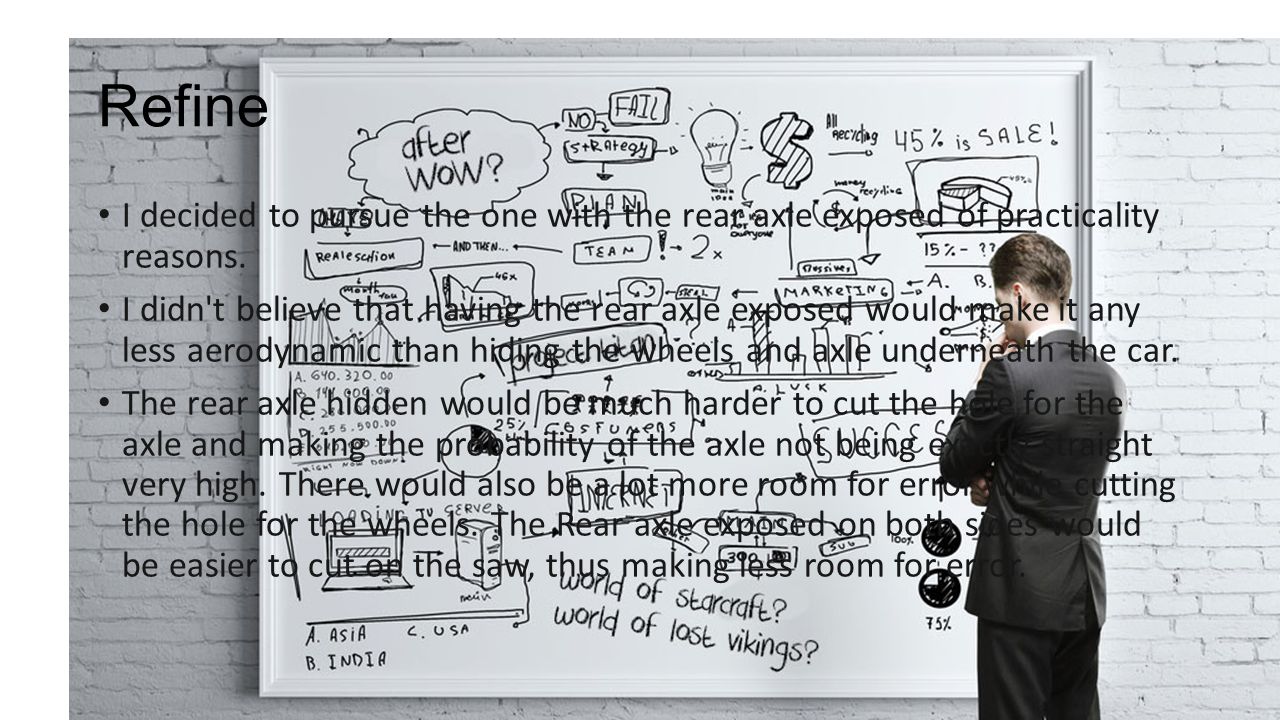 Refine
• I decided to pursue the one with the rear axle exposed of practicality
reasons.
• I didn't believe that having the rear axle exposed would make it any
less aerodynamic than hiding the wheels and axle underneath the car.
• The rear axle hidden would be much harder to cut the hole for the
axle and making the probability of the axle not being exactly straight
very high. There would also be a lot more room for error while cutting
the hole for the wheels. The Rear axle exposed on both sides would
be easier to cut on the saw, thus making less room for error.
after
WOW?
NO
FAIL
STRATEGY
PLAN
TEAM
! → 2x
AND THEN...
main
idea
All
Recycling
money
recycling
45% is SALE!
15% - ??
A. B.
MARKETING
46x
A. 640.320.00
RIGHT NOW DOWN!
25%
INTERNET
A. LUCK
LOADING TO SERVER
main
SUB
100%
75%
world of starcraft?
world of lost vikings?
A. ASIA
C. USA
B. INDIA